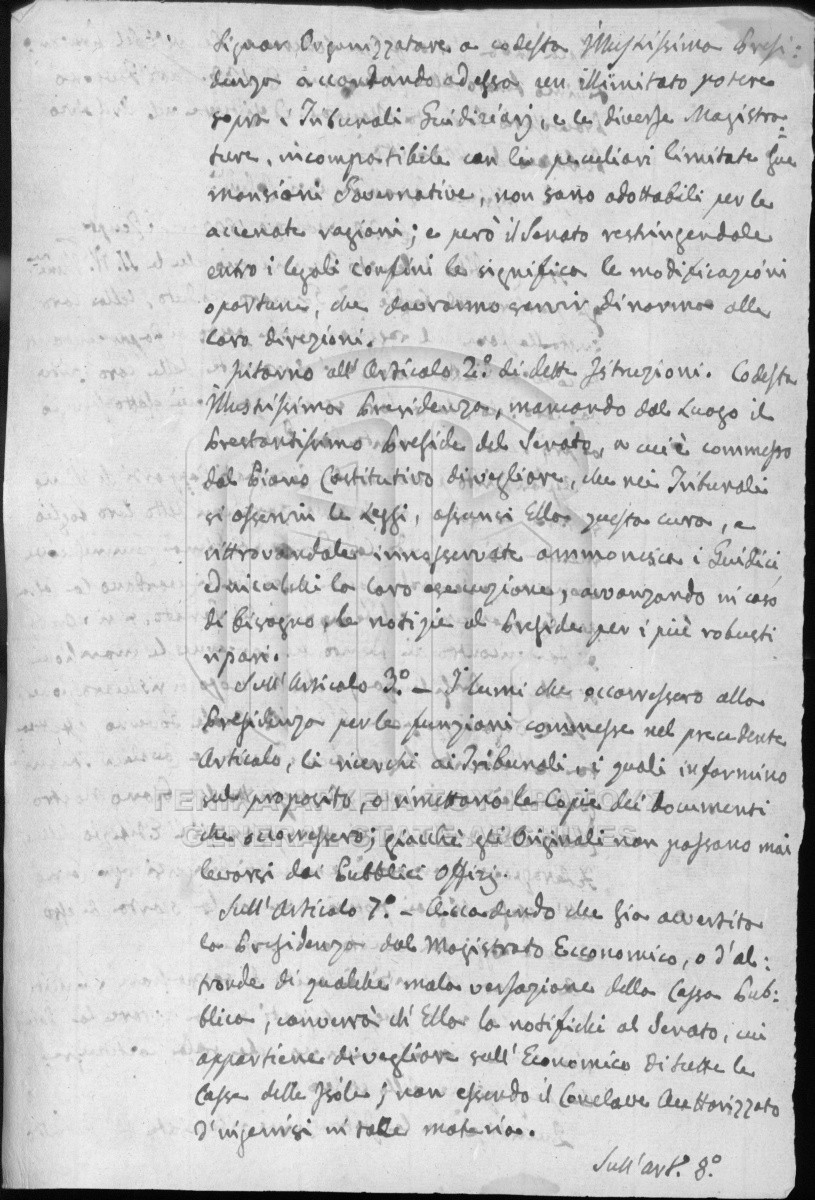 Signor Organizzatore a codesta Illustrissima Presi:
denza accordando ad essa un illimitato potere
sopra i Tribunali Giudiziarj, e le diverse Magistra
ture, incompatibile con le peculiari limitate sue
mansioni Governative, non sono adottabili per le
accenate ragioni; e però il Senato restringendole
entro i legali confini le significa le modificazioni
oportune, che dovranno servir di norma alle
loro direzioni.
Intorno all' Articolo 2.º di dette Istruzioni. Codesta
Illustrissima Presidenza, mancando dal Luogo il
Prestantissimo Preside del Senato, a cui è commesso
dal Piano Costitutivo di vegliare, che nei Tribunali
si osservin le Leggi, assumi Ella questa cura, e
rittrovandole innosservate ammonisca i Giudici
ed inculchi la loro esecuzione, avvanzando in caso
di bisogno, le notizie al Preside per i più robusti
ripari.
Sull' Articolo 3.º - I lumi che occorressero alla
Presidenza per le funzioni commesse nel precedente
Articolo, li ricerchi ai Tribunali, i quali informino
sul proposito, o rimettano le Copie dei documenti
che occorressero; giacchè gli Originali non possono mai
levarsi dai Pubblici Offizj.
Sull' Articolo 7.º - Accadendo che sia avvertita
la Presidenza dal Magistrato Ecconomico, o d' al:
tronde di qualche mala versazione della Cassa Pub:
blica, converrà ch' Ella la notifichi al Senato, cui
appartiene di vegliare sull' Economico di tutte le
Casse delle Isole; non essendo il Conclave Auttorizzato
d' ingerirsi in tale materia.
Sull' art.º 8.º
ΓΕΝΙΚΑ ΑΡΧΕΙΑ ΤΟΥ ΚΡΑΤΟΥΣ
GENERAL STATE ARCHIVES